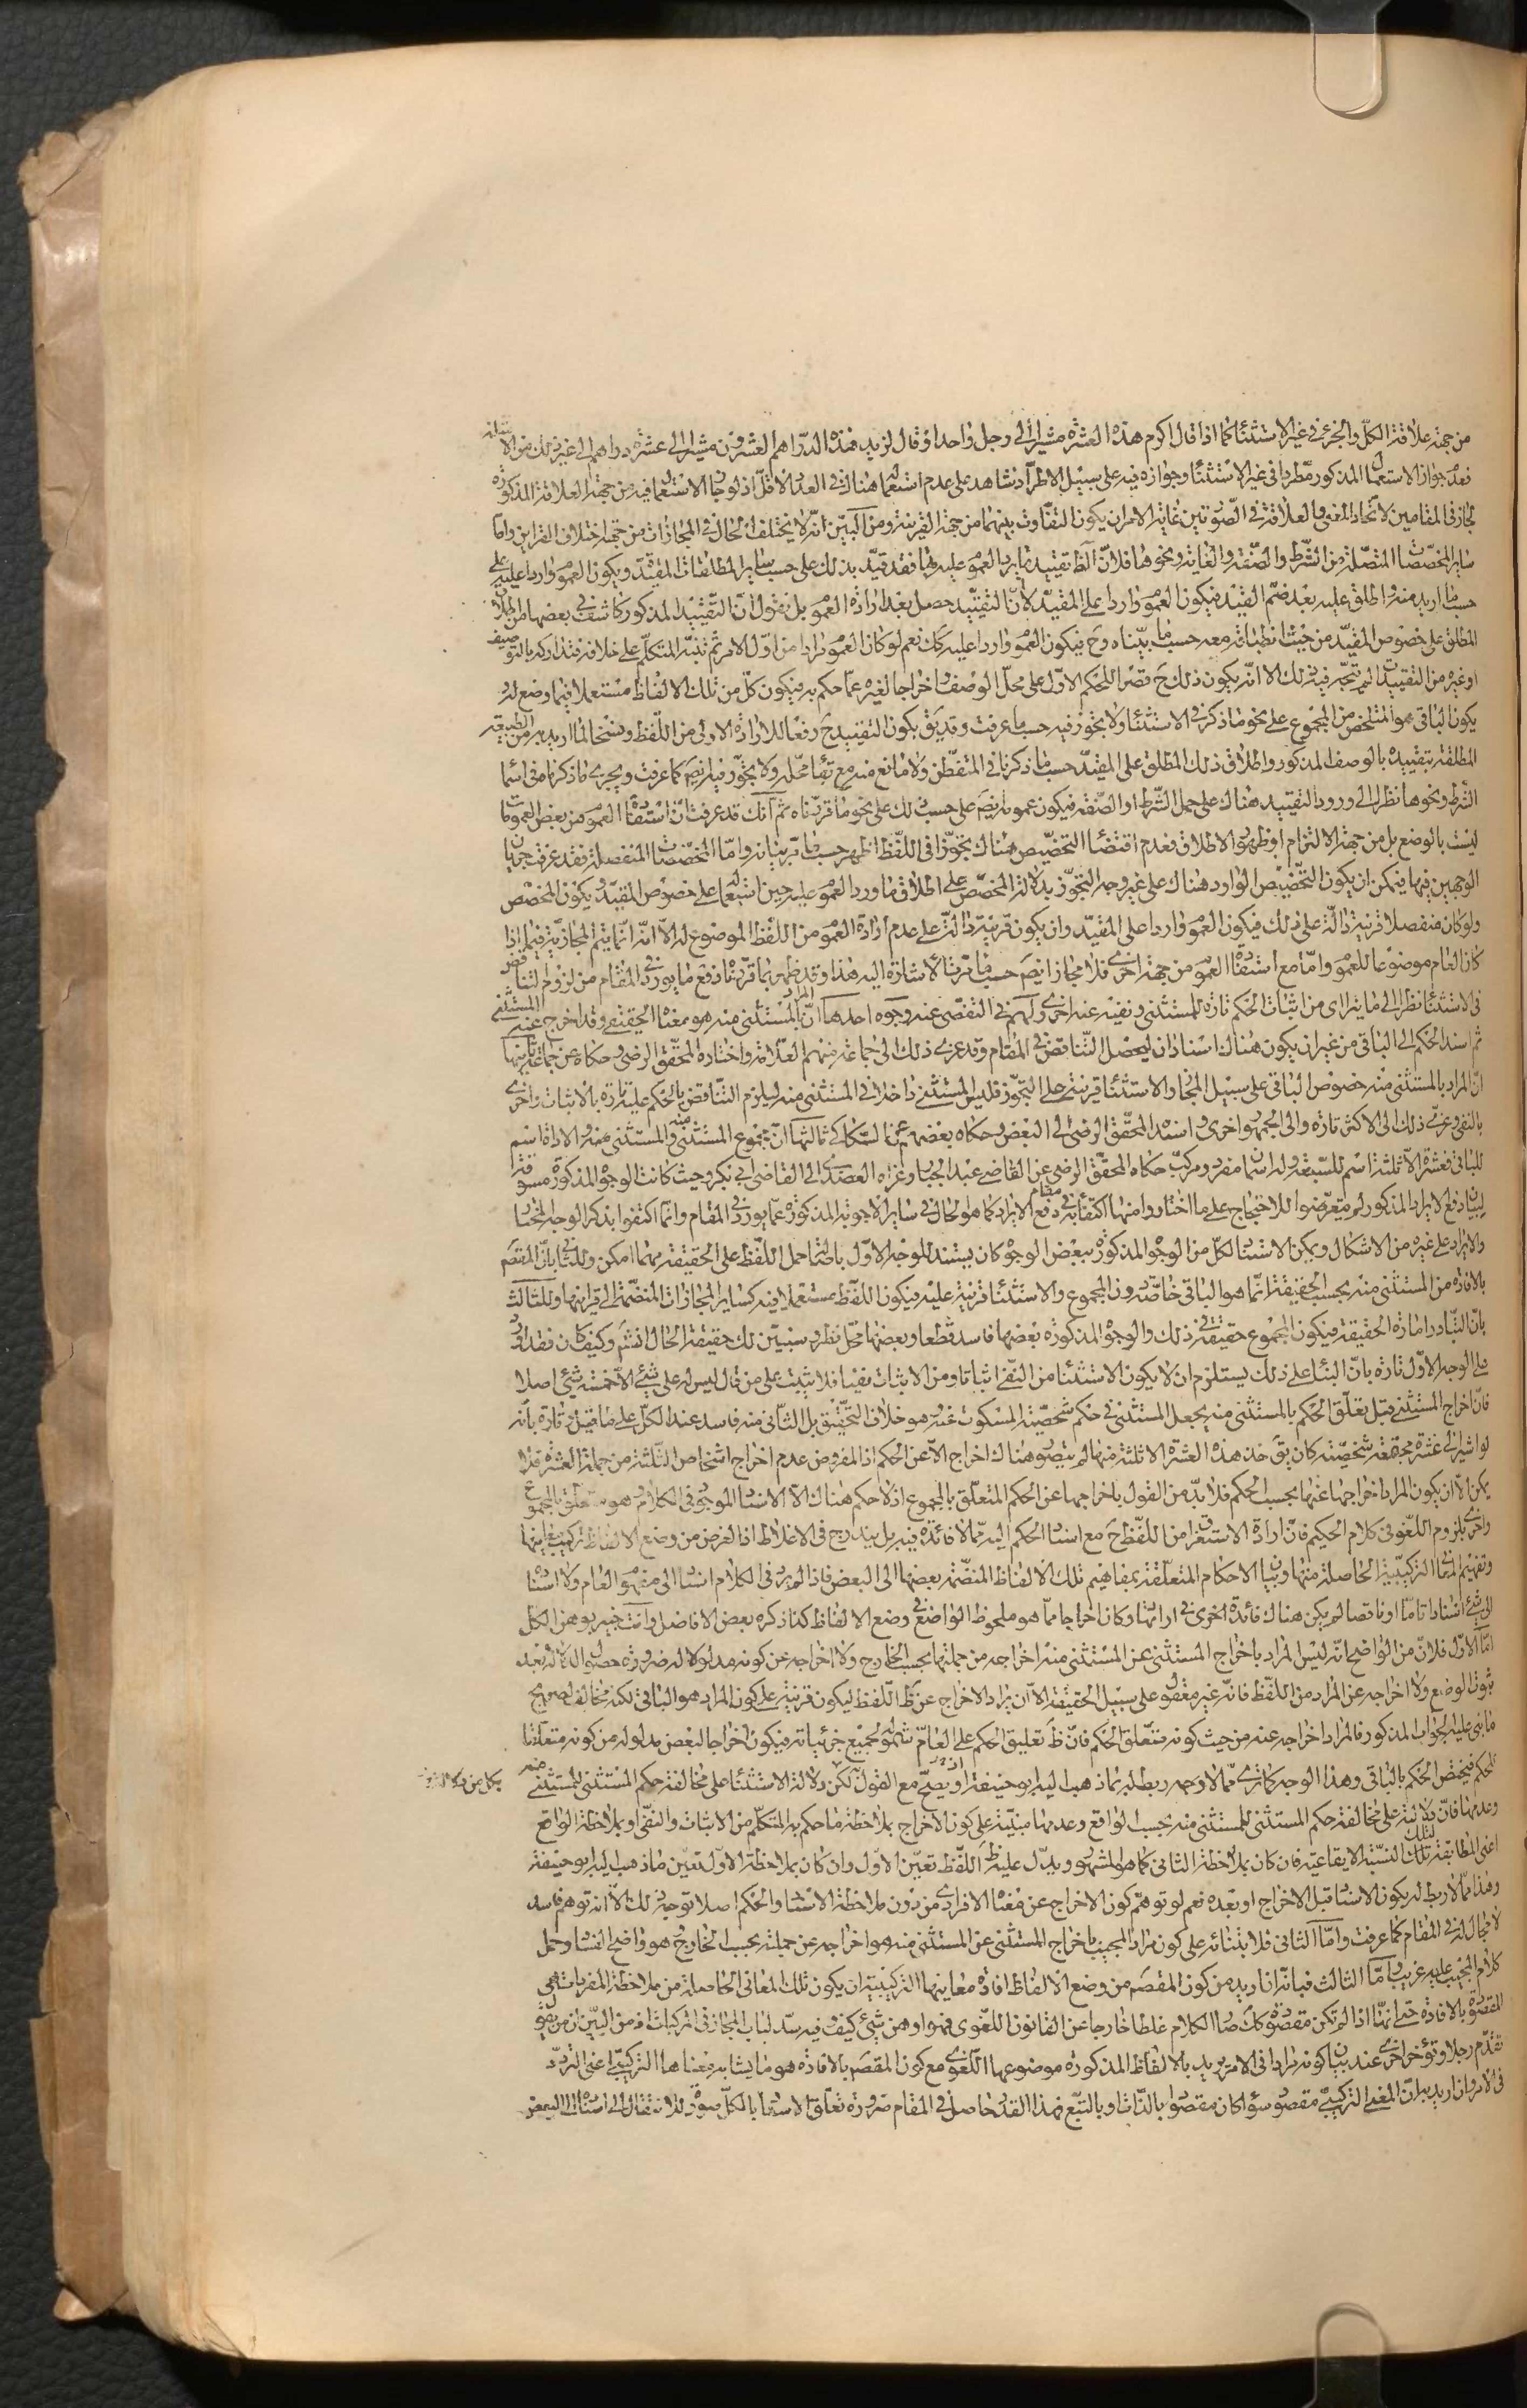 من جهة علاقة الكل والجزء في غير الاستثناء كما اذا قال اكرم هذه العشرة مشيرا الى رجل واحد او قال لزيد هذه الدراهم العشرون مشيرا الى عشرة دراهم الى غير ذلك من الامثلة
فعدم جواز الاستعمال المذكور مطردا في غير الاستثناء وجوازه فيه على سبيل الاطراد شاهد على عدم استعماله هناك في العدد الاقل اذ لو جاز الاستعمال فيه من جهة العلاقة المذكورة
لجاز في المقامين لاتحاد المعنى والعلاقة في الصورتين غاية الامر ان يكون التفاوت بينهما من جهة القرينة ومن البين انه لا يختلف الحال في المجازات من جهة اختلاف القراين واما
ساير المخصصات المتصلة من الشرط والصفة والغاية ونحوها فلان الظ تقييد ما يرد العموم عليه بها فقد قيد بذلك على حسب ساير المطلقات المقيدة ويكون العموم واردا عليه على
حسب ما اريد منه واطلق عليه بعد ضم القيد فيكون العموم واردا على المقيد لا ان التقييد حصل بعد ارادة العموم بل نقول ان التقييد المذكور كاشف في بعضها من اطلاق
المطلق على خصوص المقيد من حيث انطباقه معه حسب ما بيناه وح فيكون العموم واردا عليه كك نعم لو كان العموم مرادا من اول الامر ثم تنبه المتكلم على خلافه فتداركه بالتوصيف
او غيره من التقييدات لم يتجه فيه ذلك الا انه يكون ذلك ح قصرا للحكم الاول على محل الوصف واخراجا لغيره عما حكم به فيكون كل من تلك الالفاظ مستعملا فيما وضع له
يكون الباقي هو المتلخص من المجموع على نحو ما ذكر في الاستثناء ولا تجوز فيه حسب ما عرفت وقد يق بكون التقييد ح رفعا للارادة الاولى من اللفظ وفسخا لما اريد به من الطبيعة
المطلقة بتقييده بالوصف المذكور واطلاق ذلك المطلق على المقيد حسب ما ذكرنا في المتفطن ولا مانع منه مع بقاء محله ولا تجوز فيه ايضا كما عرفت ويجري ما ذكرنا في اسما
الشرط ونحوها نظرا الى ورود التقييد هناك على حمل الشرط او الصفة فيكون عمومه ايضا على حسب ذلك على نحو ما قررناه ثم انك قد عرفت ان استفادة العموم من بعض العمومات
ليست بالوضع بل من جهة الالتزام او ظهور الاطلاق فعدم اقتضاء التخصيص هناك تجوزا في اللفظ اظهر حسب ما مر بيانه واما المخصصات المنفصلة فقد عرفت جريان
الوجهين فيها فيمكن ان يكون التخصيص الوارد هناك على غير وجه التجوز بدلالة المخصص على اطلاق ما ورد العموم عليه حين استعماله على خصوص المقيد ويكون المخصص
ولو كان منفصلا قرينة دالة على ذلك فيكون العموم واردا على المقيد وان يكون قرينة دالة على عدم ارادة العموم من اللفظ الموضوع له الا انه انما يتم المجازية فيما اذا
كان العام موضوعا للعموم واما مع استفادة العموم من جهة اخرى فلا مجاز ايضا حسب ما مرت الاشارة اليه هذا وقد ظهر بما قررنا دفع ما يورد في المقام من لزوم التناقض
في الاستثناء نظرا الى ما يتراءى من اثبات الحكم تارة للمستثنى ونفيه عنه اخرى ولهم في التفصي عنه وجوه احدها ان المراد بالمستثنى منه هو معناه الحقيقي وقد اخرج عنه المستثنى
ثم اسند الحكم الى الباقي من غير ان يكون هناك اسنادان ليحصل التناقض في المقام وقد عزى ذلك الى جماعة منهم العلامة واختاره المحقق الرضي وحكاه عن جماعة ثانيها
ان المراد بالمستثنى منه خصوص الباقي على سبيل المجاز والاستثناء قرينة على التجوز فليس المستثنى داخلا في المستثنى منه ليلزم التناقض بالحكم عليه تارة بالاثبات واخرى
بالنفي وعزى ذلك الى الاكثر تارة والى الجمهور اخرى واسنده المحقق الرضي الى البعض وحكاه بعضهم عن السكاكي ثالثها ان مجموع المستثنى منه والمستثنى منه والاداة اسم
للباقي فعشرة الا ثلثة اسم للسبعة وله اسمان مفرد ومركب حكاه المحقق الرضي عن القاضي عبد الجبار وعزاه العضدي الى القاضي ابي بكر وحيث كانت الوجوه المذكورة مسوقة
لبيان دفع الايراد المذكور لم يتعرضوا للاحتجاج على ما اختاروا منها اكتفاء في مقام دفع الايراد كما هو الحال في ساير الاجوبة المذكورة عما يورد في المقام وانما اكتفوا بذكر الوجه المختار
والايراد على غيره من الاشكال ويمكن الاستناد لكل من الوجوه المذكورة ببعض الوجوه كان يستند للوجه الاول باصالة حمل اللفظ على الحقيقة مهما امكن وللثاني بان المقصود
بالافادة من المستثنى منه بحسب الحقيقة انما هو الباقي خاصة دون المجموع والاستثناء قرينة عليه فيكون اللفظ مستعملا فيه كساير المجازات المنضمة الى قراينها وللثالث
بان التبادر امارة الحقيقة فيكون المجموع حقيقة في ذلك والوجوه المذكورة بعضها فاسد قطعا وبعضها محل نظر وسنبين لك حقيقة الحال انش وكيف كان فقد اورد
على الوجه الاول تارة بان البناء على ذلك يستلزم ان لا يكون الاستثناء من النفي اثباتا ومن الاثبات نفيا فلا يثبت على من قال ليس له على شيء الا خمسة شيء اصلا
فان اخراج المستثنى قبل تعلق الحكم بالمستثنى منه يجعل المستثنى في حكم شخصية المسكوت عنه وهو خلاف التحقيق بل الثاني منه فاسد عند الكل على ما قيل وتارة بانه
لو اشير الى عشرة مجتمعة شخصية كان يق خذ هذه العشرة الا ثلثة منها لم يتصور هناك اخراج الا عن الحكم اذ المفروض عدم اخراج اشخاص الثلثة من جملة العشرة فلا
يمكن الا ان يكون المراد اخراجها عنها بحسب الحكم فلا بد من القول باخراجها عن الحكم المتعلق بالمجموع اذ لا حكم هناك الا الاسناد الموجود في الكلام وهو متعلق بالمجموع
واخرى بلزوم اللغو في كلام الحكيم فان ارادة الاستغراق من اللفظ ح مع اسناد الحكم اليه مما لا فائدة فيه بل يندرج في الاغلاط اذ الغرض من وضع الالفاظ تركيب معانيها
وتفهيم المعاني التركيبية الحاصلة منها وبيان الاحكام المتعلقة بمفاهيم تلك الالفاظ المنضمة بعضها الى البعض فاذا لم يرد في الكلام اسناد الى مفهوم العام ولا اسناده
الى شيء اسنادا تاما او ناقصا لم يكن هناك فائدة اخرى في ارادتها وكان اخراجا مما هو ملحوظ الواضع في وضع الالفاظ كذا ذكره بعض الافاضل وانت خبير بوهن الكل
اما الاول فلان من الواضح انه ليس المراد باخراج المستثنى عن المستثنى منه اخراجه من جملتها بحسب الخارج ولا اخراجه عن كونه مدلولا له ضرورة حصول الدلالة بعد
ثبوت الوضع ولا اخراجه عن المراد من اللفظ فانه غير معقول على سبيل الحقيقة الا ان يراد الاخراج عن ظ اللفظ ليكون قرينة على كون المراد هو الباقي لكنه مخالف لصريح
ما بني عليه الجواب المذكور فالمراد اخراجه عنه من حيث كونه متعلق الحكم فان ظ تعليق الحكم على العام شموله لجميع جزئياته فيكون اخراجا لبعض مدلوله من كونه متعلقا
للحكم فيختص الحكم بالباقي وهذا الوجه كما ترى مما لا وجه ربط له بما ذهب اليه ابو حنيفة ويصح مع القول لكن دلالة الاستثناء على مخالفة حكم المستثنى للمستثنى منه
وعدمها فان دلالته على مخالفة حكم المستثنى للمستثنى منه بحسب الواقع وعدمها مبنية على كون الاخراج بملاحظة ما حكم به المتكلم من الاثبات والنفي او بملاحظة الواقع
اعني المطابقة لتلك النسبة الايقاعية فان كان بملاحظة الثاني كما هو المشهور ويدل عليه ظ اللفظ تعين الاول وان كان بملاحظة الاول تعين ما ذهب اليه ابو حنيفة
وهذا مما لا ربط له بكون الاسناد قبل الاخراج او بعده نعم لو توهم كون الاخراج عن معناه الافرادي من دون ملاحظة الاسناد والحكم اصلا توجه ذلك الا انه توهم فاسد
لا مجال له في المقام كما عرفت واما الثاني فلابتنائه على كون مراد المجيب باخراج المستثنى عن المستثنى منه هو اخراجه عن جملته بحسب الخارج وهو واضح الفساد وحمل
كلام المجيب عليه غريب واما الثالث فبانه ان اريد من كون المقصود من وضع الالفاظ افادة معانيها التركيبية ان يكون تلك المعاني الحاصلة من ملاحظة المفردات هي
المقصودة بالافادة حتى انها اذا لم تكن مقصودة كك صار الكلام غلطا خارجا عن القانون اللغوي فهو اوهن شيء كيف وفيه سد لباب المجاز في المركبات اذ من البين ان من يقول
تقدم رجلا وتؤخر اخرى عند بيان كونه مرددا في الامر يريد بالالفاظ المذكورة موضوعها اللغوي مع كون المقصود بالافادة هو ما يشابه معناها التركيبي اعني التردد
في الامر وان اريد به ان المعنى التركيبي مقصود سواء كان مقصودا بالذات او بالتبع فهذا القدر حاصل في المقام ضرورة تعلق الاسناد بالكل صورة للانتقال الى اسناده الى البعض